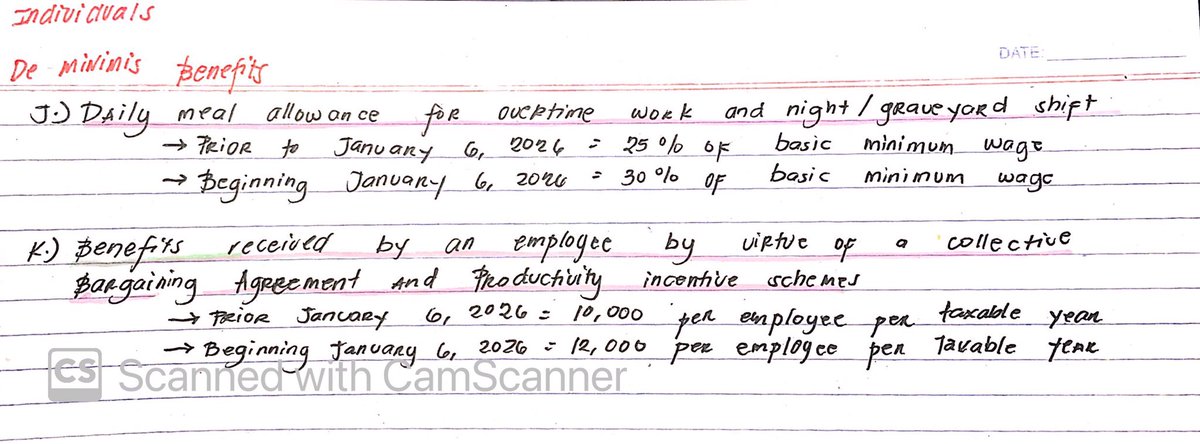 Individuals
DATE:
De minimis Benefits
J.) Daily meal allowance for overtime work and night / graveyard shift
→ Prior to January 6, 2026 = 25 % of basic minimum wage
→ Beginning January 6, 2026 = 30 % of basic minimum wage
K.) Benefits received by an employee by virtue of a collective
Bargaining Agreement and Productivity incentive schemes
→ Prior January 6, 2026 = 10,000 per employee per taxable year
→ Beginning January 6, 2026 = 12,000 per employee per Taxable year
CS Scanned with CamScanner